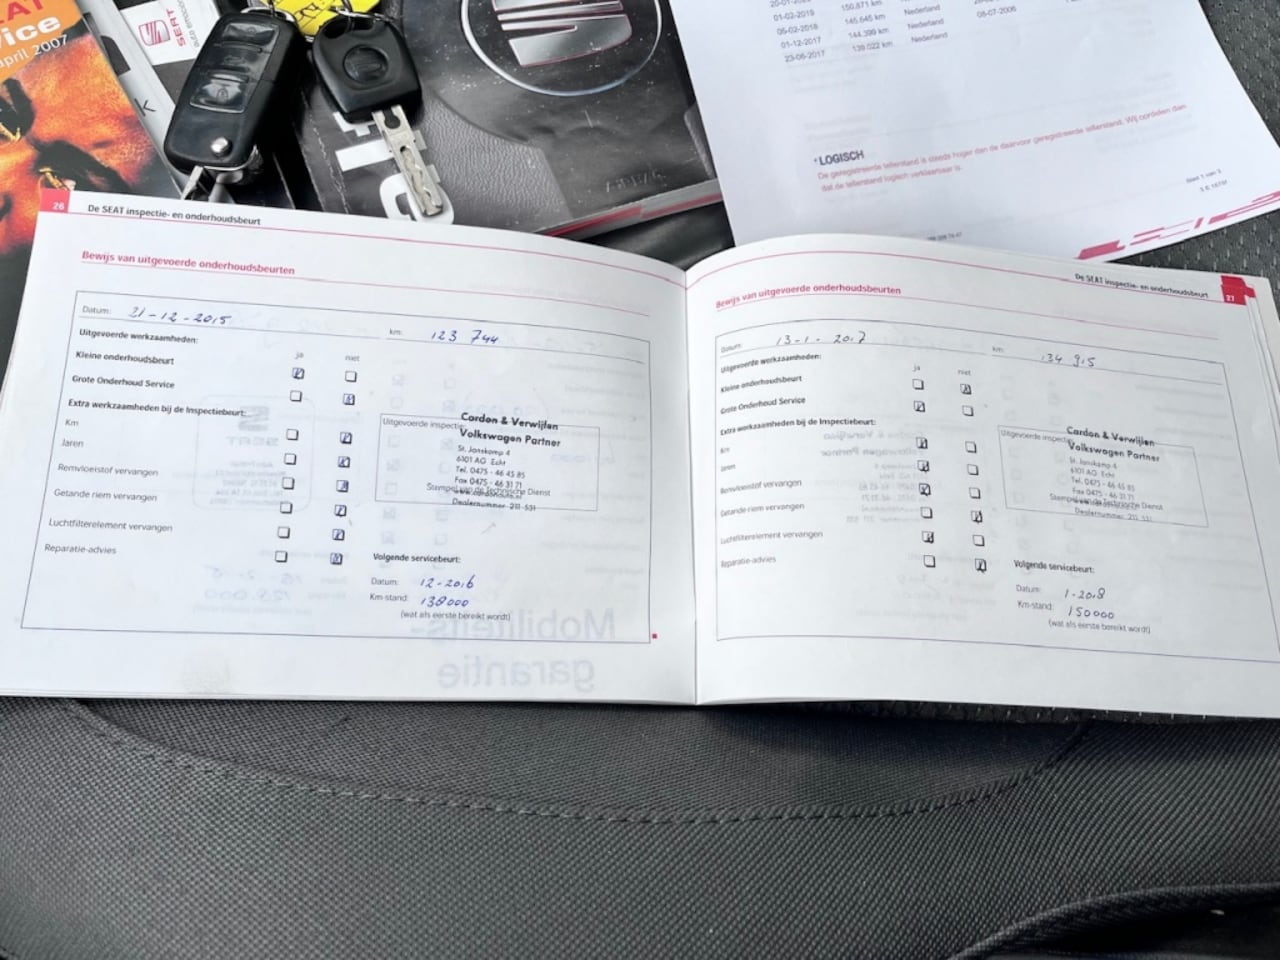 AT
ice
april 2007
SEAT
01-02-2019 150.871 km Nederland
05-02-2018 145.645 km Nederland
01-12-2017 144.399 km Nederland
23-06-2017 139.022 km
05-07-2006
*LOGISCH
De geregistreerde tellerstand is steeds hoger dan de daarvoor geregistreerde tellerstand. Wij oordelen dan
dat de tellerstand logisch verklaarbaar is.
Blad 1 van 3
AIRBAG
26 De SEAT inspectie- en onderhoudsbeurt
Bewijs van uitgevoerde onderhoudsbeurten
Datum: 21-12-2015 km: 123 744
Uitgevoerde werkzaamheden:
ja niet
Kleine onderhoudsbeurt
Grote Onderhoud Service
Extra werkzaamheden bij de Inspectiebeurt:
Km
Jaren
Remvloeistof vervangen
Getande riem vervangen
Luchtfilterelement vervangen
Reparatie-advies
Uitgevoerde inspectie:
Cardon & Verwijlen
Volkswagen Partner
St. Janskamp 4
6101 AG Echt
Tel. 0475 - 46 45 85
Fax 0475 - 46 31 71
Stempel van de Technische Dienst
Dealernummer 211 531
Volgende servicebeurt:
Datum: 12-2016
Km-stand: 138000
(wat als eerste bereikt wordt)
De SEAT inspectie- en onderhoudsbeurt 27
Bewijs van uitgevoerde onderhoudsbeurten
Datum: 13-1-2017 km: 134 915
Uitgevoerde werkzaamheden:
ja niet
Kleine onderhoudsbeurt
Grote Onderhoud Service
Extra werkzaamheden bij de Inspectiebeurt:
Km
Jaren
Remvloeistof vervangen
Getande riem vervangen
Luchtfilterelement vervangen
Reparatie-advies
Uitgevoerde inspectie:
Cardon & Verwijlen
Volkswagen Partner
St. Janskamp 4
6101 AG Echt
Tel. 0475 - 46 45 85
Fax 0475 - 46 31 71
Stempel van de Technische Dienst
Dealernummer 211 531
Volgende servicebeurt:
Datum: 1-2018
Km-stand: 150000
(wat als eerste bereikt wordt)
Mobiliteits-
garantie